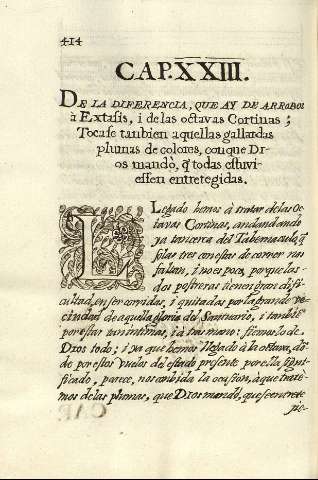 414
CAP. XXIII.
DE LA DIFERENCIA, QUE AY DE ARROBOS
à Extasis, i de las octavas Cortinas;
Tocase tanbien aquellas gallardas
plumas de colores, con que DI-
OS mandò, q̃ todas estuvi-
essen entretegidas.
LLegado hemos à tratar de las Oc
tavas Cortinas, andando
ya cerca del Tabernaculo, q̃
solas tres con estas de correr nos
faltan, i no es poco, porque las
dos postreras tienen gran difi-
cultad, en ser corridas, i quitadas por la grande ve
cindad de aquella gloria del Santuario, i tanbiẽ
por estar
DIOS todo; i ya que hemos llegado à la octava, dõ-
de por estos vuelos del estado presente por ella, signi-
ficado, parece, nos conbida la ocasiòn, à que trate-
mos de las plumas, que DIOS mandò, que se entrete
gie-